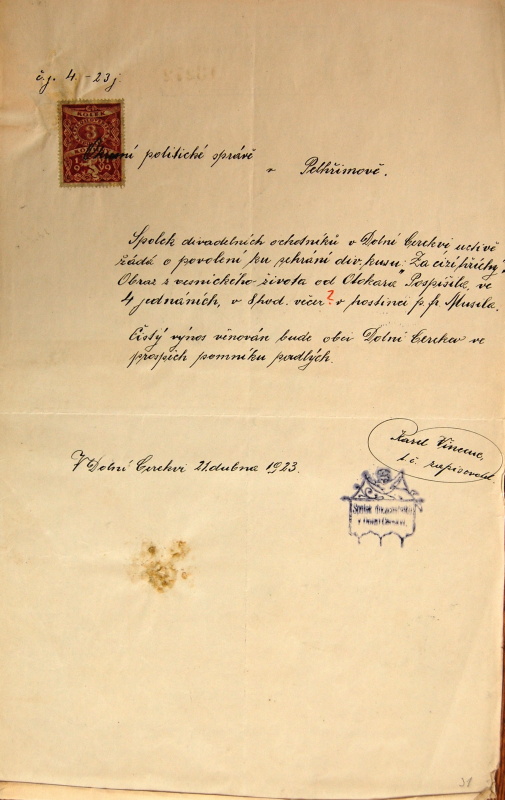 č.j. 4 - 23 j.
KOLEK
3
1919
Okresní politické správě
v Pelhřimově.
Spolek divadelních ochotníků v Dolní Cerekvi uctivě
žádá o povolení ku sehrání div. kusu: "Za cizí hříchy"
Obraz z vesnického života od Otokara Pospíšila, ve
4 jednáních, v 8 hod. večer ? v hostinci p. fr Musila.
Čistý výnos věnován bude obci Dolní Cerekev ve
prospěch pomníku padlých.
Karel Vincenc,
t.č. zapisovatel.
V Dolní Cerekvi 21. dubna 1923.
Spolek
v Dolní Cerekvi.
31